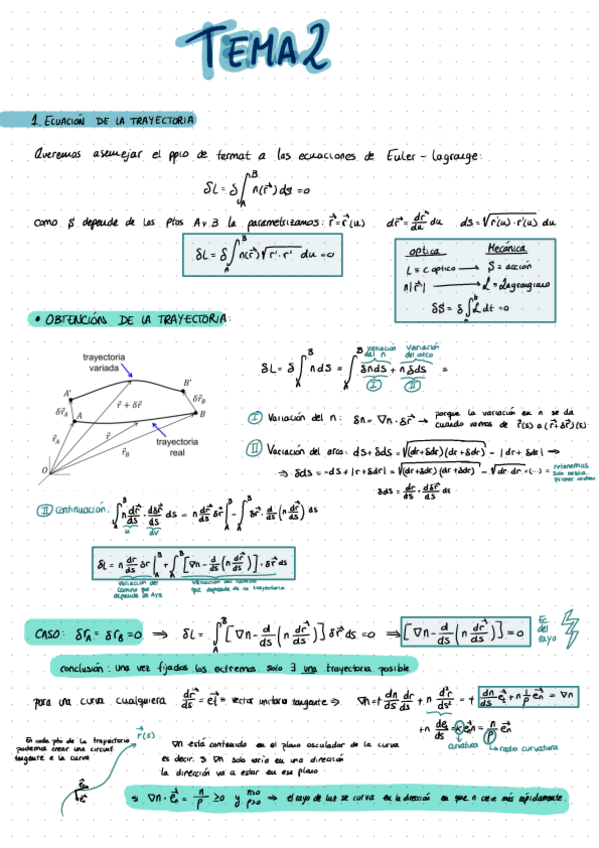 TEMA 2
1. ECUACIÓN DE LA TRAYECTORIA
Queremos asemejar el ppio de fermat a las ecuaciones de Euler - Lagrange:
δL = δ ∫_A^B n(r⃗) ds = 0
como S depende de los ptos A y B la parametrizamos: r⃗ = r⃗(u) dr⃗ = dr⃗/du du ds = √(r'(u)·r'(u)) du
δL = δ ∫_A^B n(r⃗) √(r'·r') du = 0
optica Mecánica
L = c optico → S = acción
n(r⃗) → ℒ = Lagrangiano
δS = δ ∫_a^b ℒ dt = 0
• OBTENCIÓNS DE LA TRAYECTORIA:
trayectoria
variada
A' B'
δr⃗_A A r⃗ + δr⃗ B δr⃗_B
r⃗_A r⃗ r⃗_B
trayectoria
real
O
variación del n Variación del arco
δL = δ ∫_A^B n ds = ∫_A^B δn ds + n δds =
I II
I Variación del n: δn = ∇n · δr⃗ → porque la variación en n se da
cuando vamos de r⃗(s) a (r⃗+δr⃗)(s)
II Variación del arco: ds + δds = √((dr+δdr)(dr+δdr)) = |dr + δdr| →
⇒ δds = -ds + |r + δdr| = √((dr+δdr)(dr+δdr)) - √(dr dr) = (...) = retenemos
solo hasta
primer orden
δds = dr/ds · dδr⃗/ds ds
II Continuación: ∫_A^B n dr⃗/ds · dδr⃗/ds ds = n dr⃗/ds δr⃗ |_A^B - ∫_A^B δr⃗ · d/ds (n dr⃗/ds) ds
u dv
δL = n dr/ds δr |_A^B + ∫_A^B [∇n - d/ds (n dr⃗/ds)] · δr⃗ ds
Variación del
camino que
depende de A y B
Variación del camino
que depende de la trayectoria
CASO: δr_A = δr_B = 0 ⇒ δL = ∫_A^B [∇n - d/ds (n dr⃗/ds)] δr⃗ ds = 0 ⇒ [∇n - d/ds (n dr⃗/ds)] = 0
Ec
del
rayo
conclusión: una vez fijados los extremos solo ∃ una trayectoria posible
para una curva cualquiera dr⃗/ds = e⃗_t = vector unitario tangente ⇒ ∇n = + dn/ds dr/ds + n d²r⃗/ds² = + dn/ds e⃗_t + n 1/ρ e⃗_n = ∇n
+ n de_t/ds = κ e⃗_n = n/ρ e⃗_n
curvatura radio curvatura
En cada pto de la trayectoria
podemos crear una circunf.
tangente a la curva
r⃗(s)
e⃗_n
e⃗_t
∇n está contenido en el plano osculador de la curva
es decir, si ∇n solo varia en una dirección
la dirección va a estar en ese plano
si ∇n · e⃗_n = n/ρ ≥ 0 y n>0 ρ>0 ⇒ el rayo de luz se curva en la dirección en que n crece más rápidamente.